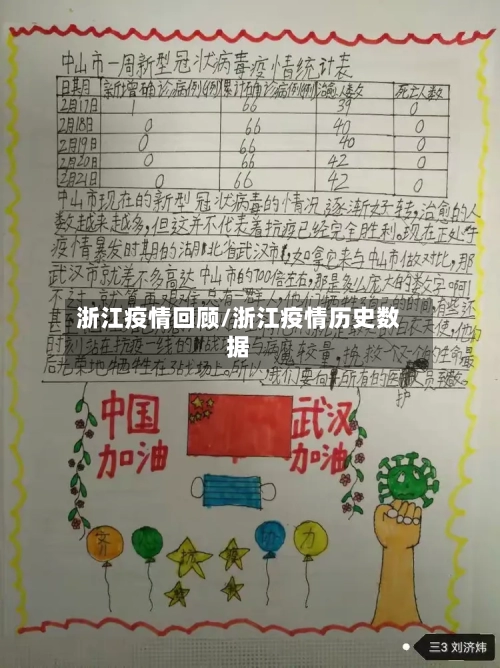 中山市一周新型冠状病毒疫情统计表
日期 新增确诊病例(例) 累计确诊病例(例) 治愈人数 死亡人数
2月17日 1 66 39 0
2月18日 0 66 40 0
2月19日 0 66 40 0
2月20日 0 66 42 0
2月21日 0 66 42 0
中山市现在的新型冠状病毒的情况逐渐好转,治愈的人
数越来越多,但这并不代表着抗疫已经完全胜利。现在正处于
疫情暴发时期的湖北省武汉市,如拿它来与中山市做对比,那
武汉市就差不多高达中山市的700倍左右,那是多么庞大的数字啊!
浙江疫情回顾/浙江疫情历史数
据
时刻站在抗疫一线的 与病魔较量,挽救一个个的生命,最
后光荣地牺牲在 战场上。所以,我们要向所有的医 人员致敬。
护
中国
加油
武汉
加油
齐 心 抗 疫 协 力
三3 刘济炜